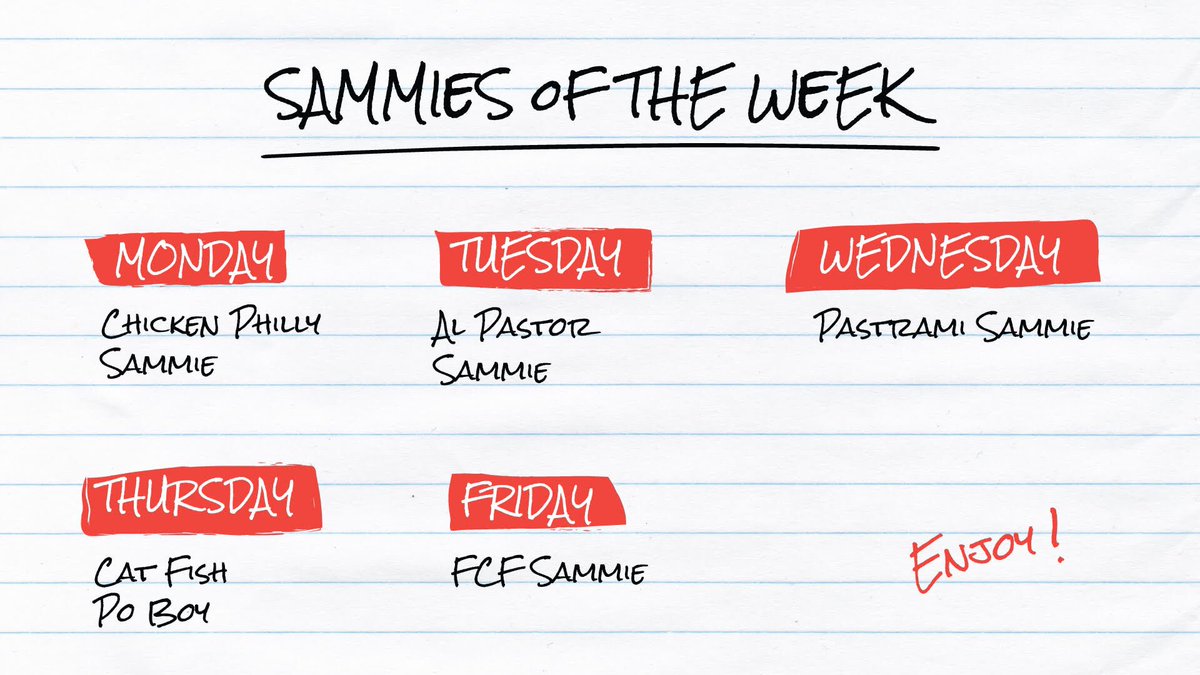 SAMMIES OF THE WEEK
MONDAY
CHICKEN PHILLY
SAMMIE
TUESDAY
AL PASTOR
SAMMIE
WEDNESDAY
PASTRAMI SAMMIE
THURSDAY
CAT FISH
PO BOY
FRIDAY
FCF SAMMIE
ENJOY!